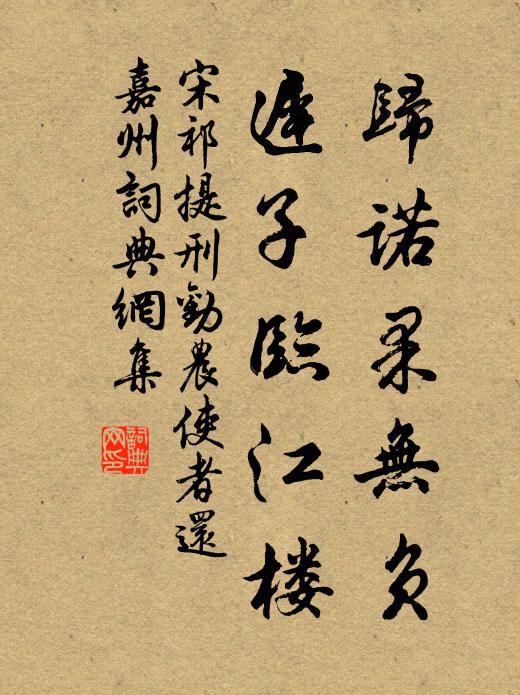 歸諾果無負
遲子臨江樓
宋祁提刑勸農使者還
嘉州詞典網集
詞典
网印